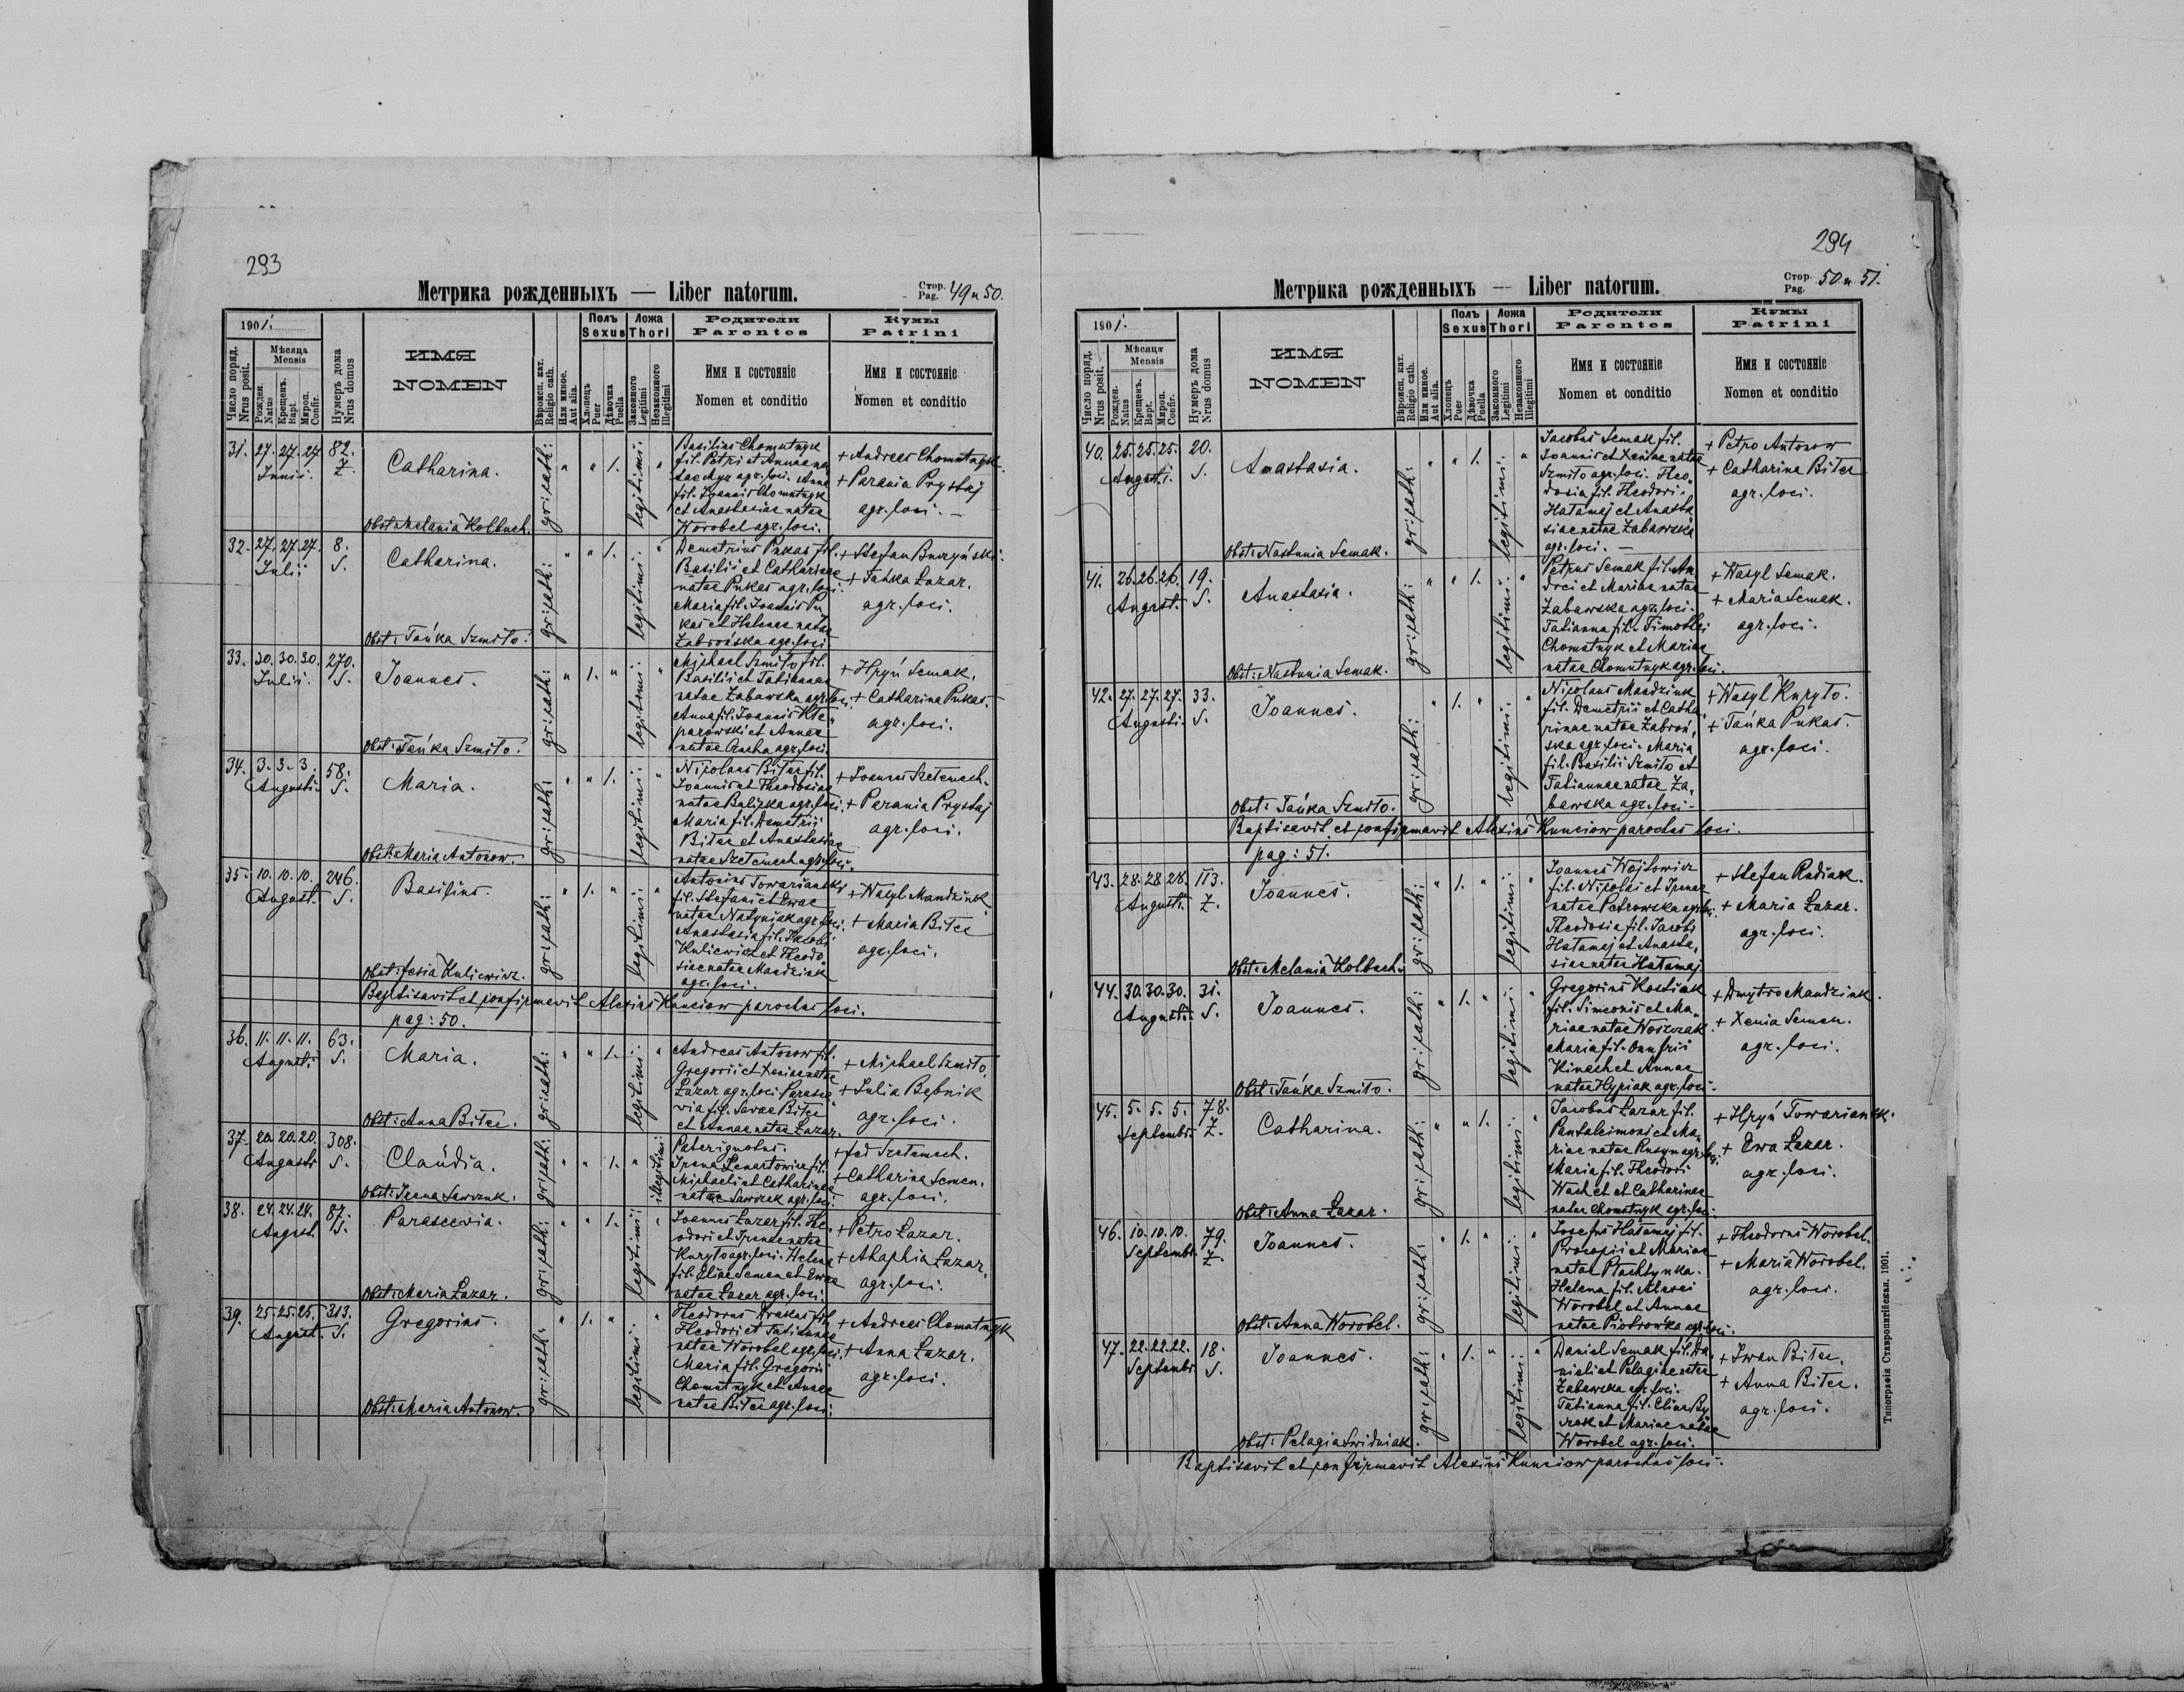 293
Метрика рожденныхъ — Liber natorum.
Стор. Pag. 49 и 50.
1901.
Число поряд. Nrus posit.
Мѣсяца Mensis
Рожден. Natus
Крещенъ. Bapt.
Мироп. Confir.
Нумеръ дома Nrus domus
ИМЯ
NOMEN
Вѣроисп. кат. Religio cath.
Или иное. Aut alia.
Полъ Sexus
Хлопець Puer
Дѣвочка Puella
Ложа Thori
Законного Legitimi
Незаконного Illegitimi
Родители
Parentes
Имя и состояніе
Nomen et conditio
Кумы
Patrini
Имя и состояніе
Nomen et conditio
31. 27. 27. 27. Junii. 82. Z.
Catharina.
Obst: Melania Kolbuch.
gr: cath: " " 1. legitimi: "
Basilius Chomutnyk
fil. Petri et Annae na
agr. loci. Anna
fil. Joannis Chomutnyk
et Anastasiae natae
Worobel agr. loci.
+ Andreas Chomutnyk.
+ Parania Prystaj
agr. loci. —
32. 27. 27. 27. Julii 8. S.
Catharina.
Obst: Tańka Szmiło.
gr: cath: " " 1. legitimi: "
Demetrius Pukas fil.
Basilii et Catharinae
natae Pukas agr. loci.
Maria fil. Joannis Pu
kas et Helenae natae
Zabrońska agr. loci
+ Stefan Burzyński.
+ Tańka Łazar.
agr. loci.
33. 30. 30. 30. Julii. 270. S.
Joannes.
Obst: Tańka Szmiło.
gr: cath: " 1. " legitimi: "
Michael Szmiło fil.
Basilii et Tatiannae
natae Zabawska agr. loci.
Anna fil. Joannis Kle„
parowski et Annae
natae agr. loci.
+ Hryń Semak.
+ Catharina Pukas.
agr. loci.
34. 3. 3. 3. Augusti. 58. S.
Maria.
Obst: Maria Antonow.
gr: cath: " " 1. legitimi: "
Nicolaus Bitar fil.
Joannis et Theodosiae
natae Balicka agr. loci.
Maria fil. Demetrii
Bitar et Anastasiae
natae Szetemech agr. loci.
+ Joannes Szetemech.
+ Parania Prystaj
agr. loci.
35. 10. 10. 10. August. 246. S.
Basilius.
Obst: Fesia Kulicwicz.
gr: cath: " 1. " legitimi: "
Antonius Towariański
fil. Stefani et Ewae
natae Natyniak agr. loci.
Anastasia fil. Jacobi
Kulicwicz et Theodo
siae natae Mandziak
agr. loci.
+ Wasyl Mandziuk.
+ Maria Bitce
agr. loci.
Baptisavit et confirmavit Alexius Kunciow parochus loci.
pag: 50.
36. 11. 11. 11. Augusti 63. S.
Maria.
Obst: Anna Bitce.
gr: cath: " " 1. legitimi: "
Andreas Antonow fil.
Gregorii et Xeniae natae
Łazar agr. loci. Parasce
via fil. Savae Bitce
et Annae natae Łazar.
+ Michael Szmiło.
+ Julia Bębnik
agr. loci.
37. 20. 20. 20. Augusti 308. S.
Claudia.
Obst: Irena Sawczuk.
gr: cath: " " 1. " illegitimi:
Pater ignotus.
Irena Lenartowicz fil.
Michaeli et Catharinae
natae Sawczak agr. loci.
+ Fed Szetemech.
+ Catharina Semen.
agr. loci.
38. 24. 24. 24. August. 87. S.
Parascevia.
Obst: Maria Łazar.
gr: cath: " " 1. legitimi: "
Joannes Łazar fil. The„
odori et Irenae natae
Kuryło agr. loci. Helena
fil. Eliae Semen et Ewae
natae Łazar agr. loci.
+ Petro Łazar.
+ Ahaphia Łazar.
agr. loci.
39. 25. 25. 25. August. 313. S.
Gregorius.
Obst: Maria Antonow.
gr: cath: " 1. " legitimi: "
Theodorus fil.
Theodori et Tatiannae
natae Worobel agr. loci.
Maria fil. Gregorii
Chomutnyk et Annae
natae Bitce agr. loci.
+ Andreas Chomutnyk
+ Anna Łazar.
agr. loci.
294
Метрика рожденныхъ — Liber natorum.
Стор. Pag. 50 и 51.
1901.
Число поряд. Nrus posit.
Мѣсяца Mensis
Рожден. Natus
Крещенъ. Bapt.
Мироп. Confir.
Нумеръ дома Nrus domus
ИМЯ
NOMEN
Вѣроисп. кат. Religio cath.
Или иное. Aut alia.
Полъ Sexus
Хлопець Puer
Дѣвочка Puella
Ложа Thori
Законного Legitimi
Незаконного Illegitimi
Родители
Parentes
Имя и состояніе
Nomen et conditio
Кумы
Patrini
Имя и состояніе
Nomen et conditio
40. 25. 25. 25. Augusti. 20. S.
Anastasia.
Obst: Nastunia Semak.
gr: cath: " " 1. legitimi: "
Jacobus Semak fil.
Joannis et Xeniae natae
Szmiło agr. loci. Theo„
dosia fil. Theodori
Hatamaj et Anasta
siae natae Zabawska
agr. loci. —
+ Petro Antonow
+ Catharina Bitce
agr. loci.
41. 26. 26. 26. August. 19. S.
Anastasia.
Obst: Nastunia Semak.
gr: cath: " " 1. legitimi: "
Petrus Semak fil. An
drei et Mariae natae
Zabawska agr. loci.
Tatianna fil. Timothei
Chomutnyk et Mariae
natae Chomutnyk agr. loci.
+ Wasyl Semak.
+ Maria Semak.
agr. loci.
42. 27. 27. 27. Augusti. 33. S.
Joannes.
Obst: Tańka Szmiło.
gr: cath: " 1. " legitimi: "
Nicolaus Mandziuk
fil. Demetrii et Catha„
rinae natae Zabroń„
ska agr. loci. Maria
fil. Basilii Szmiło et
Tatiannae natae Za„
bawska agr. loci.
+ Wasyl Kuryło.
+ Tańka Pukas.
agr. loci.
Baptisavit et confirmavit Alexius Kunciow parochus loci.
pag: 51.
43. 28. 28. 28. August. 113. Z.
Joannes.
Obst: Melania Kolbuch.
gr: cath: " 1. " legitimi: "
Joannes Wojtowicz
fil. Nicolai et Irenae
natae Petrowska agr. loci.
Theodosia fil. Jacobi
Hatamaj et Anasta„
siae natae Hatamaj
+ Stefan Rudiak.
+ Maria Łazar.
agr. loci.
44. 30. 30. 30. August. 31. S.
Joannes.
Obst: Tańka Szmiło.
gr: cath: " 1. " legitimi: "
Gregorius Kostiak
fil. Simeonis et Ma„
riae natae Woszczak.
Maria fil. Onufrii
Kinach et Annae
natae Hypiak agr. loci.
+ Dmytro Mandziuk.
+ Xenia Semen.
agr. loci.
45. 5. 5. 5. Septembr. 78. Z.
Catharina.
Obst: Anna Łazar.
gr: cath: " " 1. legitimi: "
Jacobus Łazar fil.
Pantaleimoni et Ma„
riae natae Rusyn agr. loci.
Maria fil. Theodori
et Catharinae
natae Chomutnyk agr. loci.
+ Hryń Towariański.
+ Ewa Łazar.
agr. loci.
46. 10. 10. 10. Septembr. 79. Z.
Joannes.
Obst: Anna Worobel.
gr: cath: " 1. " legitimi: "
Josefus Hatamaj fil.
Procopii et Mariae
natae Ptachtynka.
Helena fil. Alexei
Worobel et Annae
natae Piotrowka agr. loci.
+ Theodorus Worobel.
+ Maria Worobel.
agr. loci.
47. 22. 22. 22. Septembr. 18. S.
Joannes.
Obst: Pelagia Swidniak.
gr: cath: " 1. " legitimi: "
Daniel Semak fil. Da„
nieli et Pelagiae natae
Zabawska agr. loci.
Tatianna fil. Eliae
et Mariae natae
Worobel agr. loci.
+ Iwan Bitce.
+ Anna Bitce.
agr. loci.
Baptisavit et confirmavit Alexius Kunciow parochus loci.
Типографія Ставропигійская. 1901.